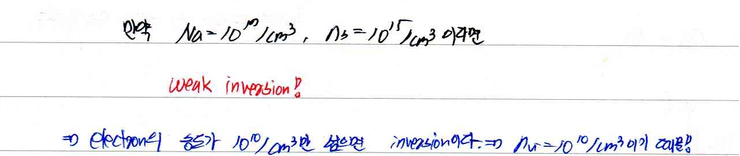 만약 Na = 10¹⁷/cm³, ns = 10¹⁵/cm³ 이라면
weak inversion!
⇒ electron의 농도가 10¹⁰/cm³만 넘으면 inversion이다. ⇒ ni = 10¹⁰/cm³이기 때문!